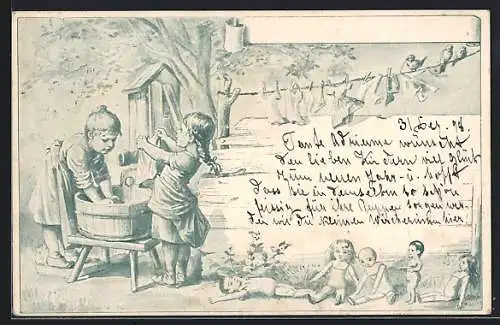 31 Dez. 98.
Tante Adrienne wünscht
den lieben Kindern viel Glück
zum neuen Jahr u. hofft
dass sie in demselben so schön
fleissig für ihre Puppen sorgen wer-
den wie die kleinen Wäscherinnen hier.